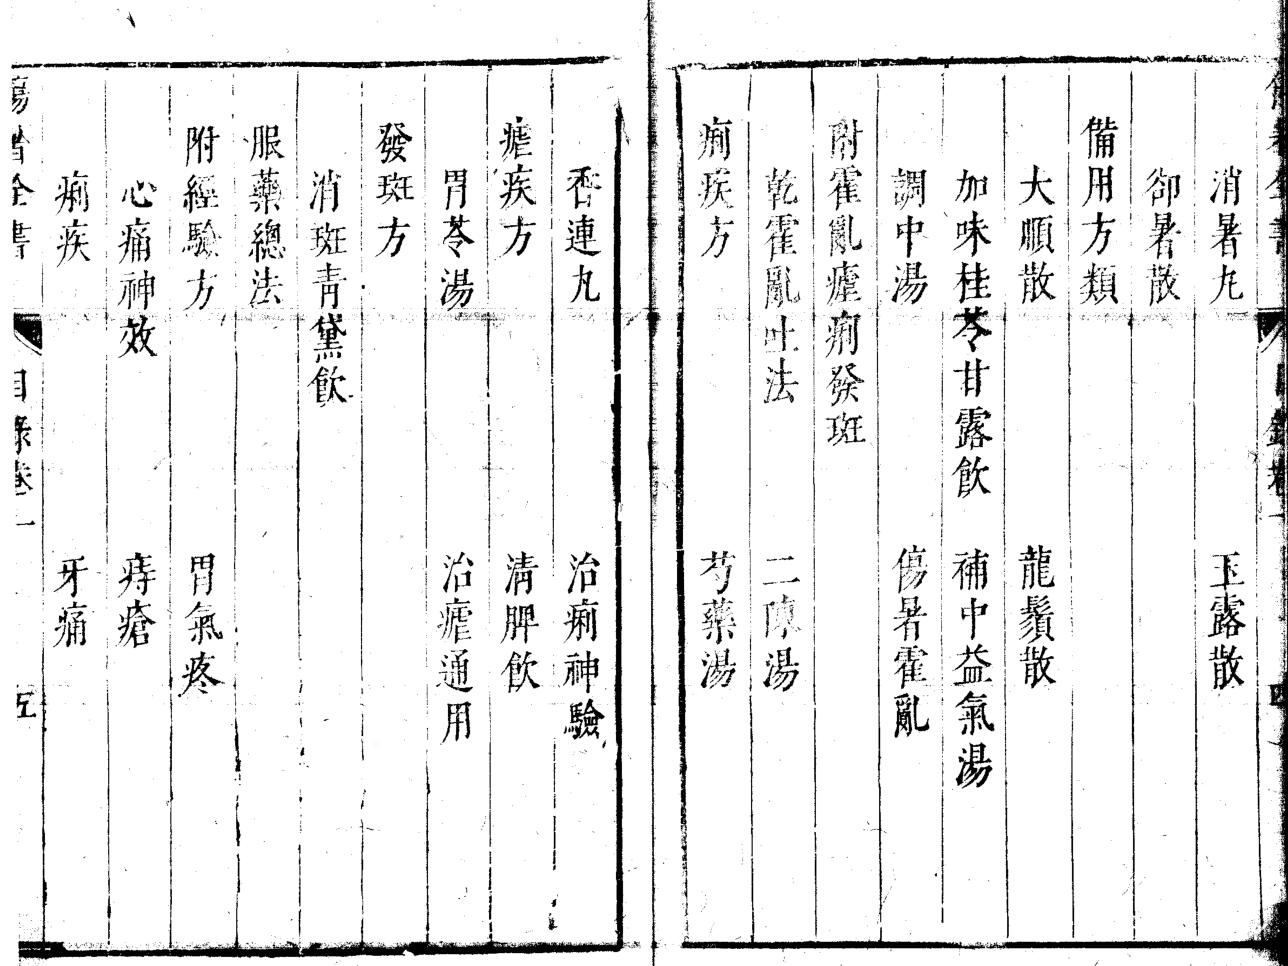 消暑丸　玉露散
卻暑散
備用方類
大順散　龍鬚散
加味桂苓甘露飲　補中益氣湯
調中湯　傷暑霍亂
附霍亂瘧痢發斑
乾霍亂吐法　二陳湯
痢疾方　芍藥湯
香連丸　治痢神驗
瘧疾方　清脾飲
胃苓湯　治瘧通用
發斑方
消斑青黛飲
服藥總法
附經驗方　胃氣疼
心痛神效　痔瘡
痢疾　牙痛
傷暑全書　目錄卷一　五